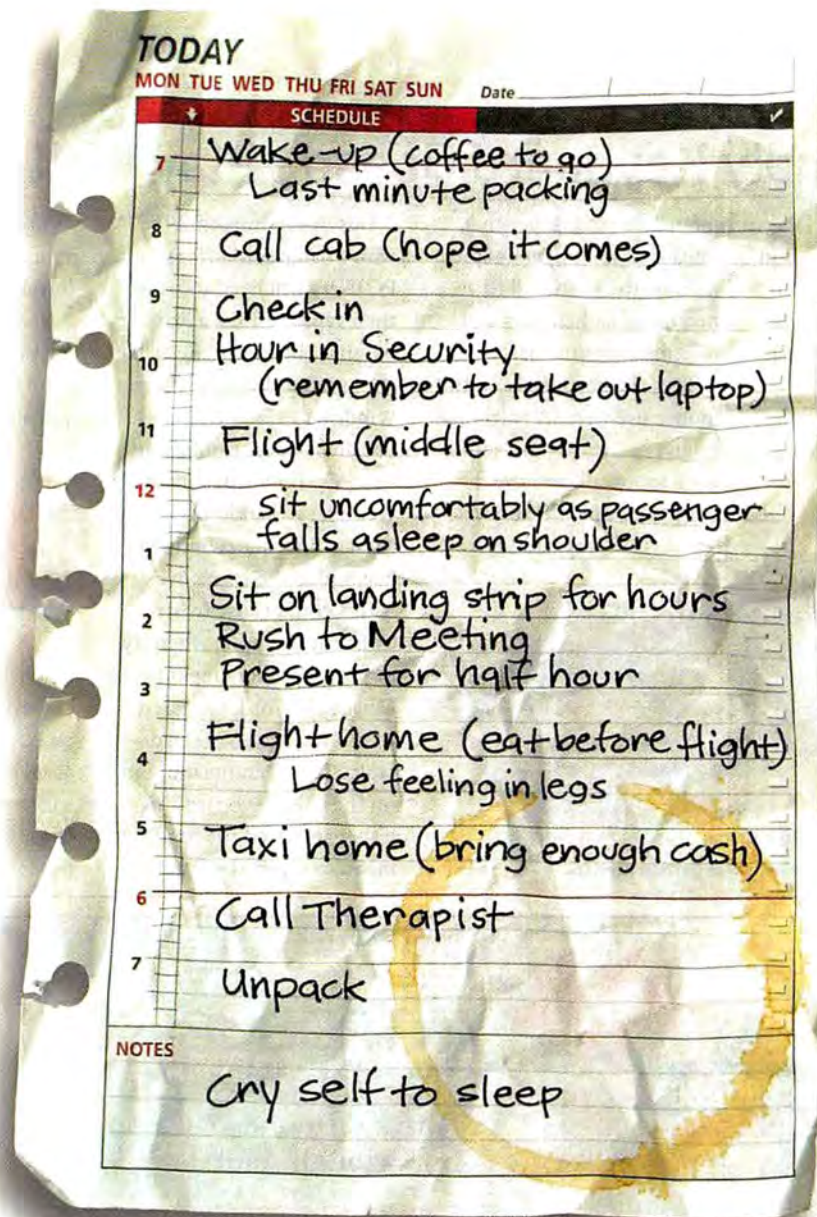 TODAY
MON TUE WED THU FRI SAT SUN Date
SCHEDULE
7 Wake-up (coffee to go)
Last minute packing
8
Call cab (hope it comes)
9
Check in
10 Hour in Security
(remember to take out laptop)
11
Flight (middle seat)
12
Sit uncomfortably as passenger
1 falls asleep on shoulder
Sit on landing strip for hours
2 Rush to Meeting
3 Present for half hour
Flight home (eat before flight)
4
Lose feeling in legs
5 Taxi home (bring enough cash)
6
Call Therapist
7
Unpack
NOTES
Cry self to sleep